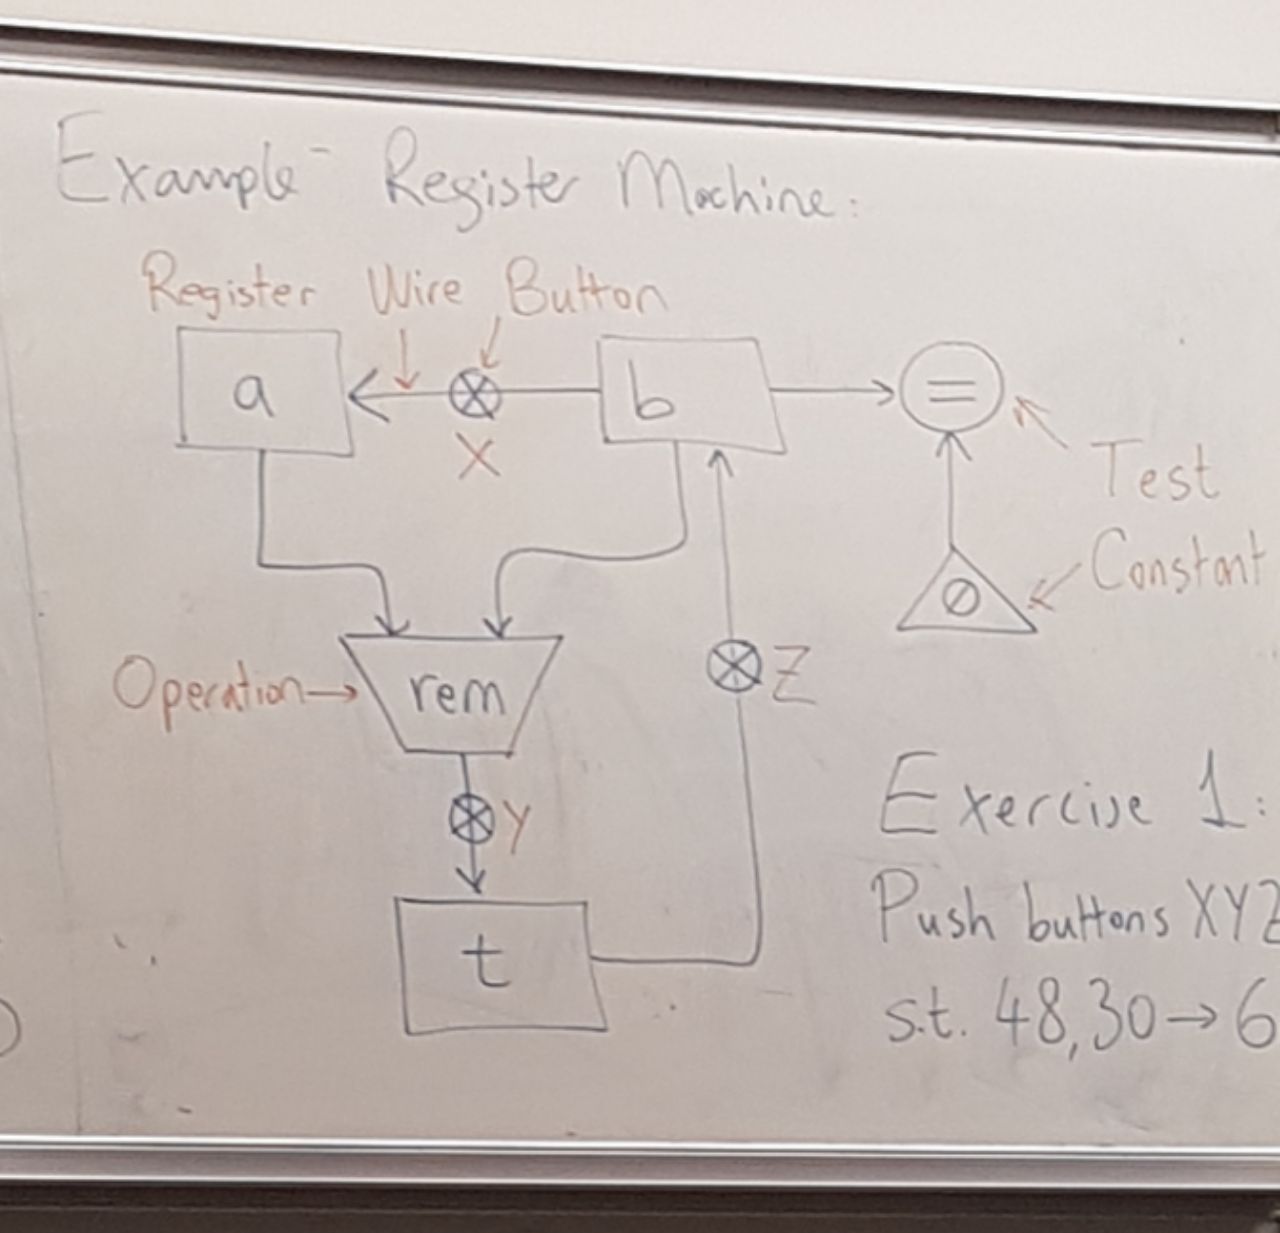 Example - Register Machine:
Register Wire Button
a
b
=
X
Test
Constant
0
Operation → rem
Z
Y
Exercise 1:
Push buttons XYZ
t
s.t. 48,30 → 6